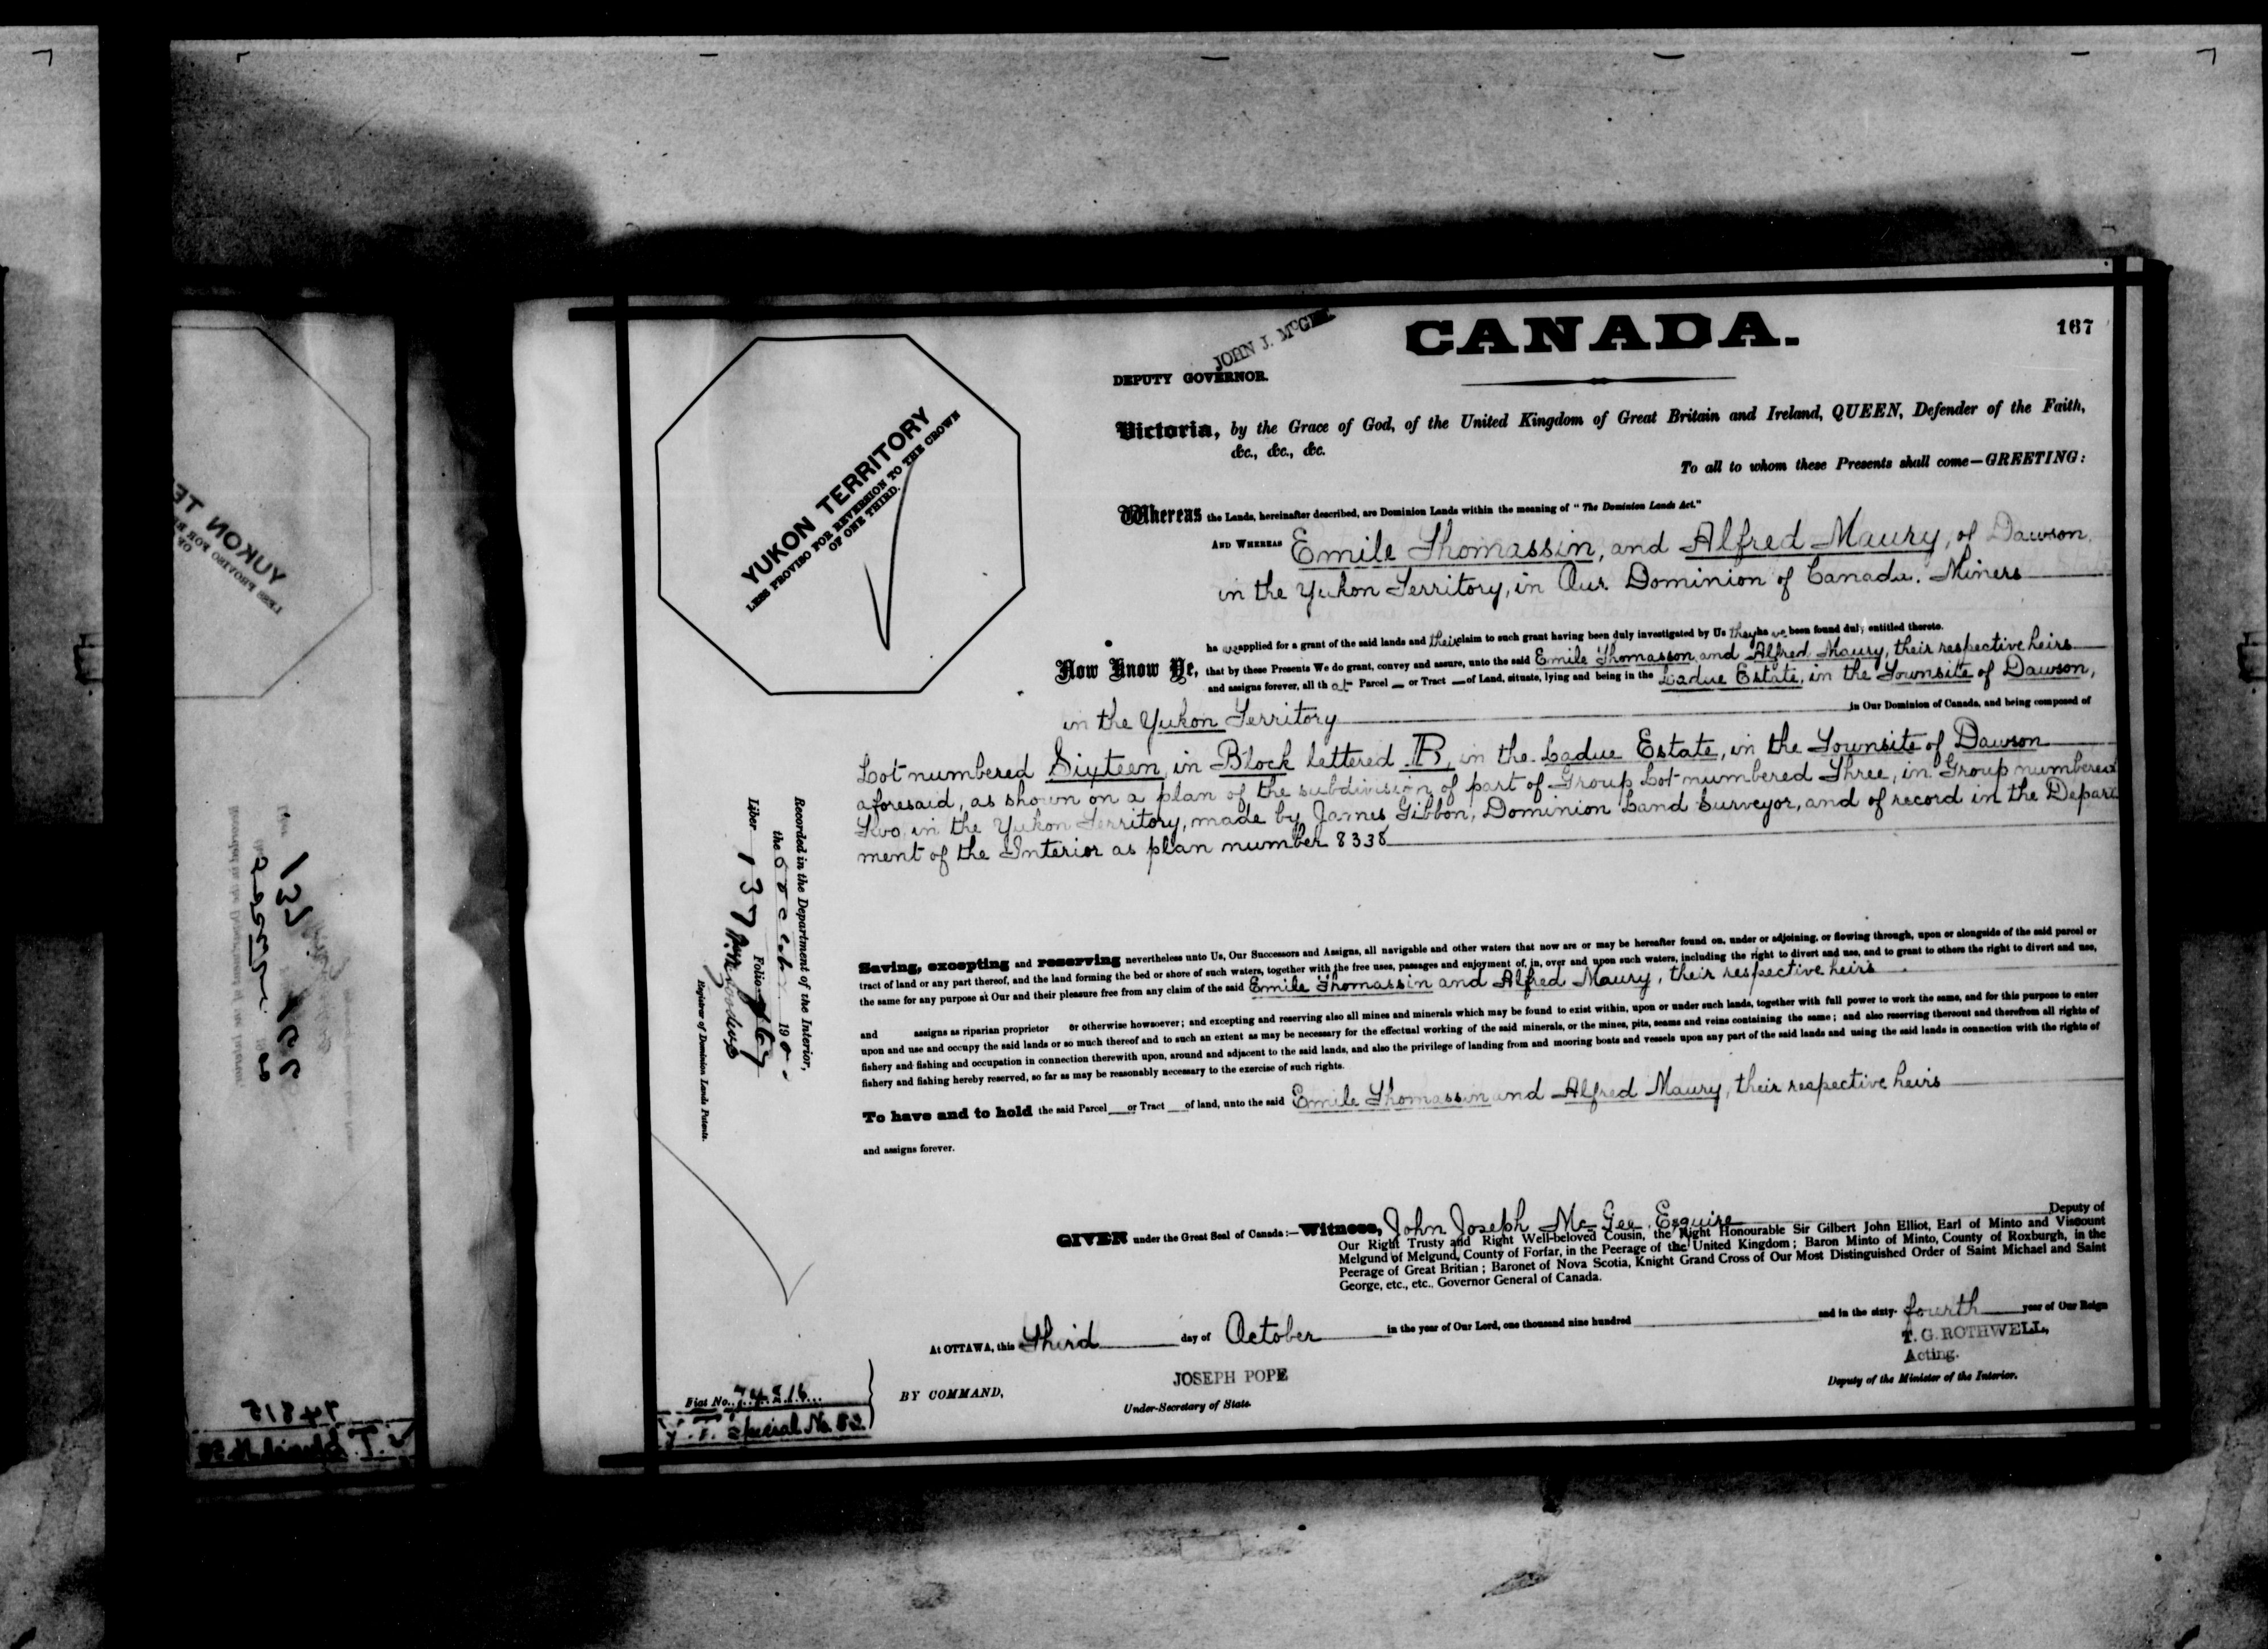 CANADA.
167
JOHN J. McGEE
DEPUTY GOVERNOR.
YUKON TERRITORY
LESS PROVISO FOR REVERSION TO THE CROWN
OF ONE THIRD.
Victoria, by the Grace of God, of the United Kingdom of Great Britain and Ireland, QUEEN, Defender of the Faith,
&c., &c., &c.
To all to whom these Presents shall come—GREETING:
Whereas the Lands, hereinafter described, are Dominion Lands within the meaning of "The Dominion Lands Act."
AND WHEREAS Emile Thomassin, and Alfred Maury, of Dawson,
in the Yukon Territory, in Our Dominion of Canada, Miners
ha ve applied for a grant of the said lands and their claim to such grant having been duly investigated by Us they ha ve been found duly entitled thereto.
Now Know Ye, that by these Presents We do grant, convey and assure, unto the said Emile Thomasson and Alfred Maury, their respective heirs
and assigns forever, all th at Parcel — or Tract — of Land, situate, lying and being in the Ladue Estate, in the Townsite of Dawson,
in the Yukon Territory in Our Dominion of Canada, and being composed of
Lot numbered Sixteen, in Block lettered B, in the Ladue Estate, in the Townsite of Dawson
aforesaid, as shown on a plan of the subdivision of part of Group Lot numbered Three, in Group numbered
Two, in the Yukon Territory, made by James Gibbon, Dominion Land Surveyor, and of record in the Depart
ment of the Interior as plan number 8338
Recorded in the Department of the Interior,
the October 190
Liber 137 Folio 167
Registrar of Dominion Lands Patents.
Saving, excepting and reserving nevertheless unto Us, Our Successors and Assigns, all navigable and other waters that now are or may be hereafter found on, under or adjoining, or flowing through, upon or alongside of the said parcel or
tract of land or any part thereof, and the land forming the bed or shore of such waters, together with the free uses, passages and enjoyment of, in, over and upon such waters, including the right to divert and use, and to grant to others the right to divert and use,
the same for any purpose at Our and their pleasure free from any claim of the said Emile Thomassin and Alfred Maury, their respective heirs
and assigns as riparian proprietor or otherwise howsoever; and excepting and reserving also all mines and minerals which may be found to exist within, upon or under such lands, together with full power to work the same, and for this purpose to enter
upon and use and occupy the said lands or so much thereof and to such an extent as may be necessary for the effectual working of the said minerals, or the mines, pits, seams and veins containing the same; and also reserving thereout and therefrom all rights of
fishery and fishing and occupation in connection therewith upon, around and adjacent to the said lands, and also the privilege of landing from and mooring boats and vessels upon any part of the said lands and using the said lands in connection with the rights of
fishery and fishing hereby reserved, so far as may be reasonably necessary to the exercise of such rights.
To have and to hold the said Parcel — or Tract — of land, unto the said Emile Thomassin and Alfred Maury, their respective heirs
and assigns forever.
GIVEN under the Great Seal of Canada:—Witness, John Joseph McGee, Esquire Deputy of
Our Right Trusty and Right Well-beloved Cousin, the Right Honourable Sir Gilbert John Elliot, Earl of Minto and Viscount
Melgund of Melgund, County of Forfar, in the Peerage of the United Kingdom; Baron Minto of Minto, County of Roxburgh, in the
Peerage of Great Britian; Baronet of Nova Scotia, Knight Grand Cross of Our Most Distinguished Order of Saint Michael and Saint
George, etc., etc., Governor General of Canada.
At OTTAWA, this Third day of October in the year of Our Lord, one thousand nine hundred and in the sixty-fourth year of Our Reign
T. G. ROTHWELL,
Acting.
Deputy of the Minister of the Interior.
BY COMMAND,
JOSEPH POPE
Under-Secretary of State.
Fiat No. 74816
Y. T. Special No. 82.